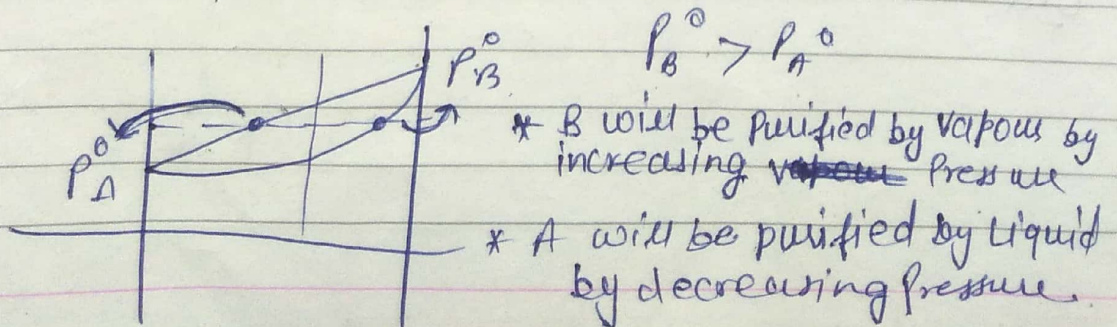 P_B° > P_A°
P_B°
* B will be purified by vapous by
increasing Pressure
P_A°
* A will be purified by Liquid
by decreasing Pressure.